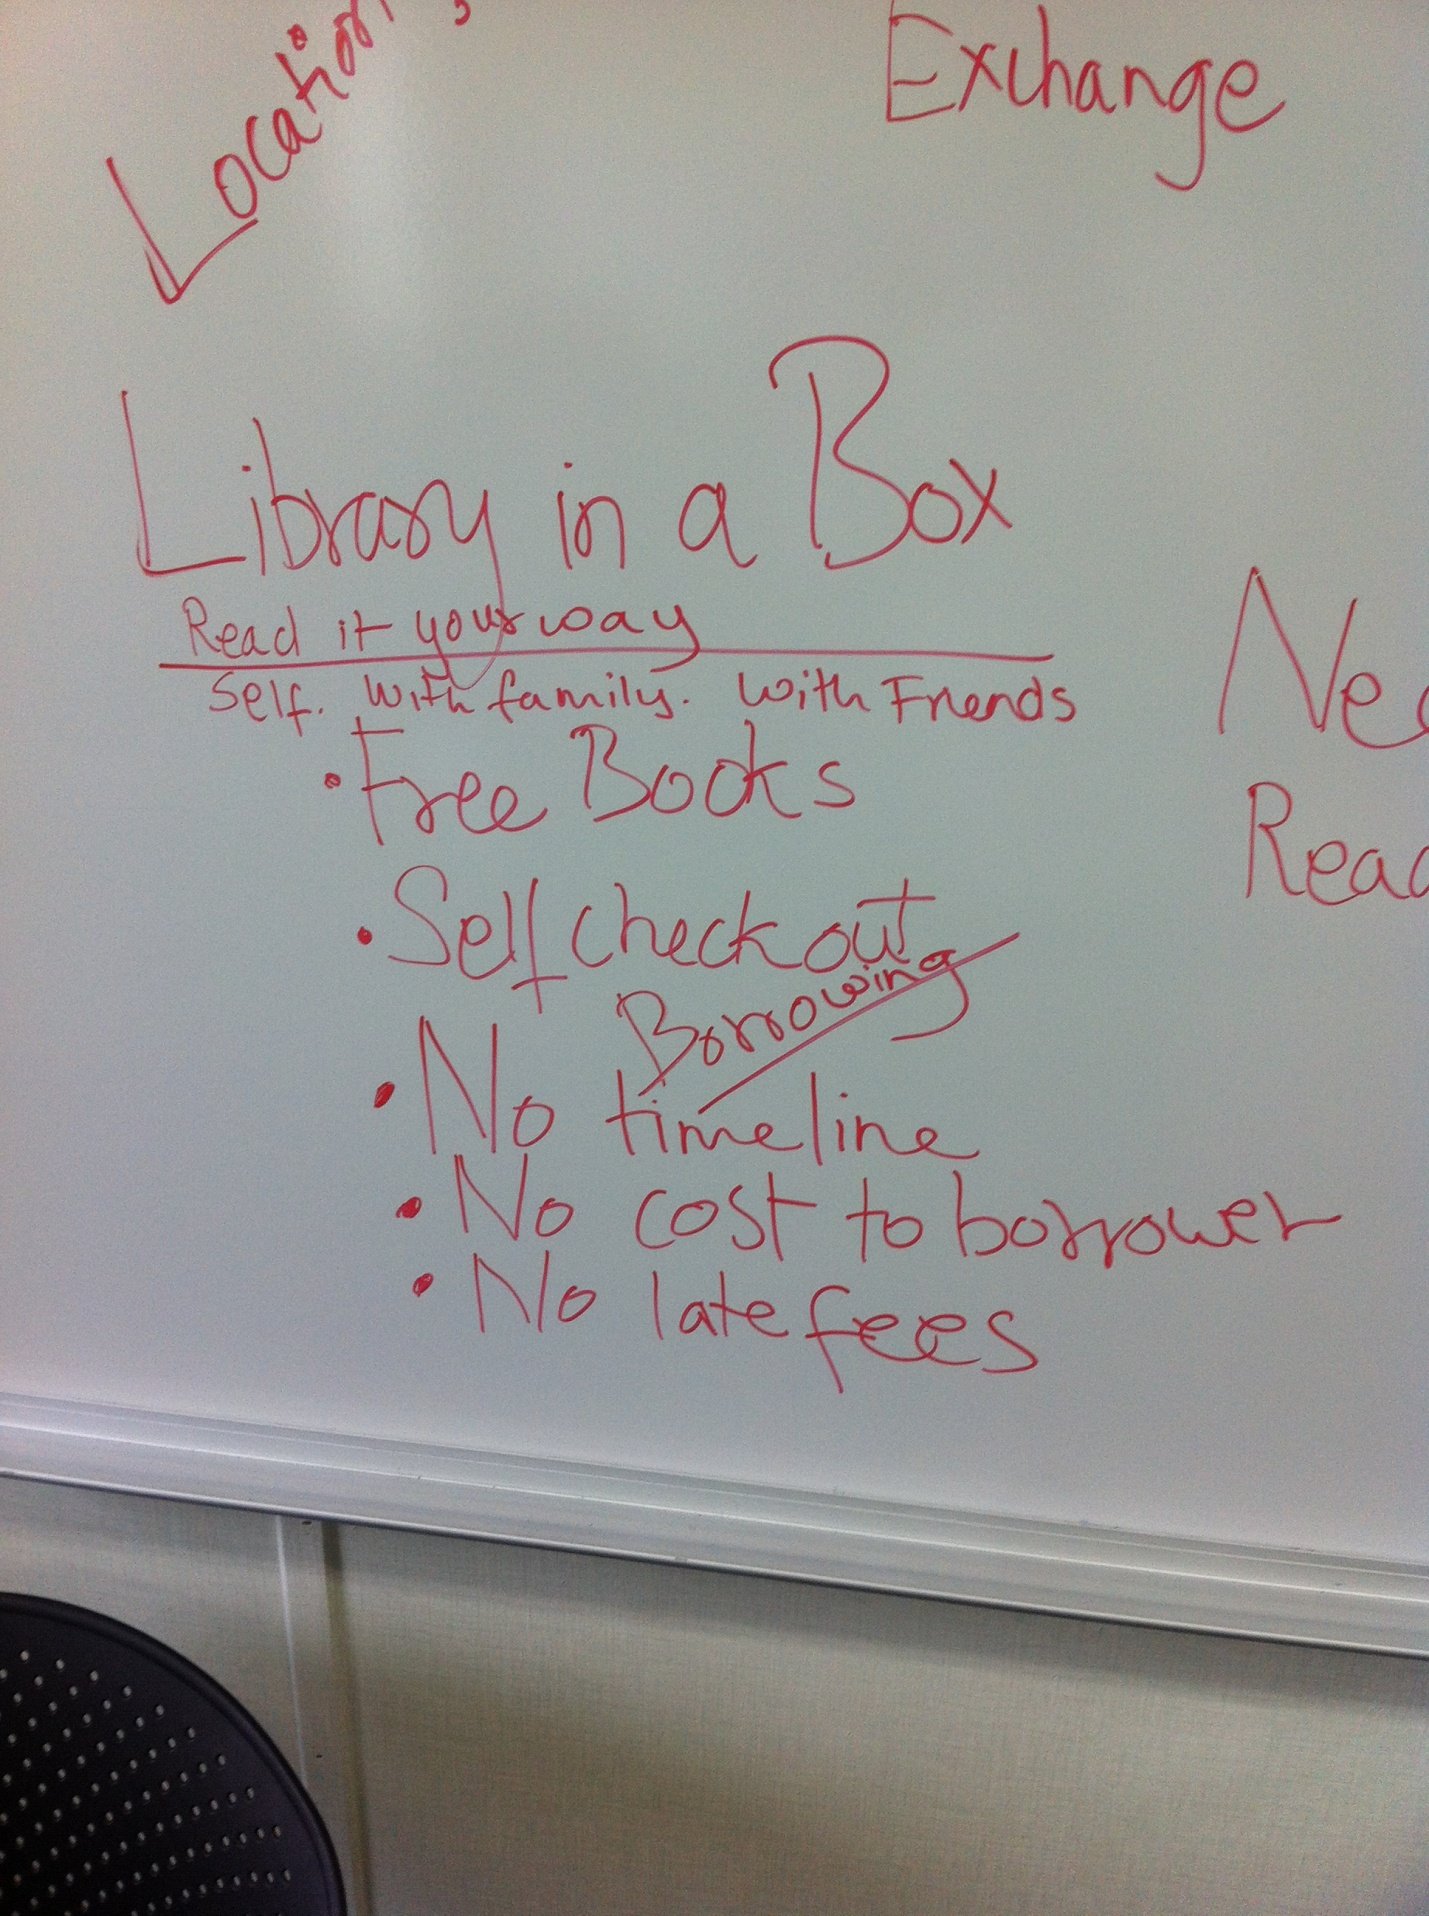 Location
Exchange
Library in a Box
Read it your way
Self. With family. With Friends
• Free Books
• Self checkout
Borrowing
• No timeline
• No cost to borrower
• No late fees